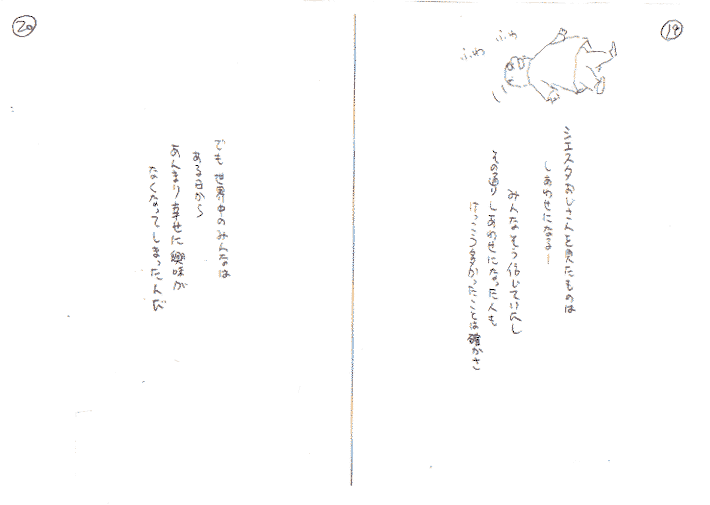 19
ふわ
ふわ
シエスタおじさんを見たものは
しあわせになる—
みんなそう信じていたし
その通りしあわせになった人も
けっこう多かったことは確かさ
20
でも世界中のみんなは
ある日から
あんまり幸せに興味が
なくなってしまったんだ